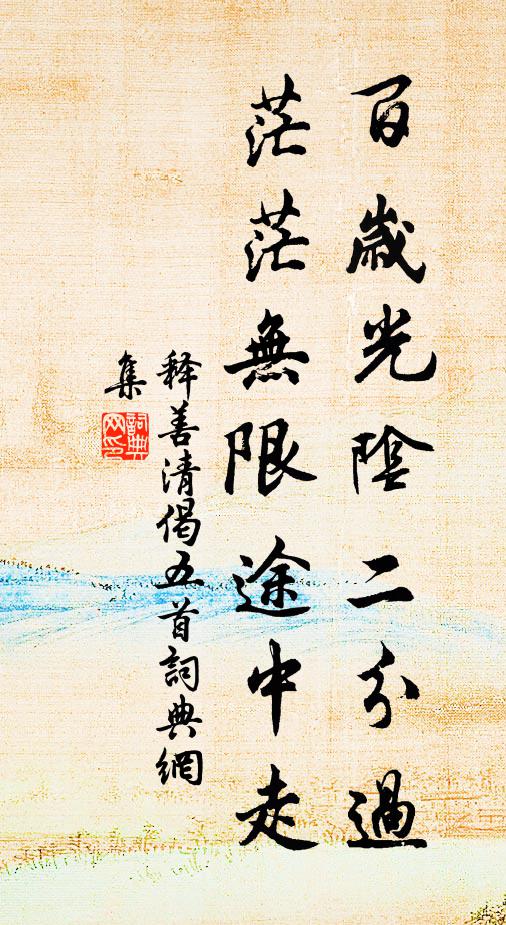 百歲光陰二分過
茫茫無限途中走
释善清偈五首詞典網
集
詞典
网印